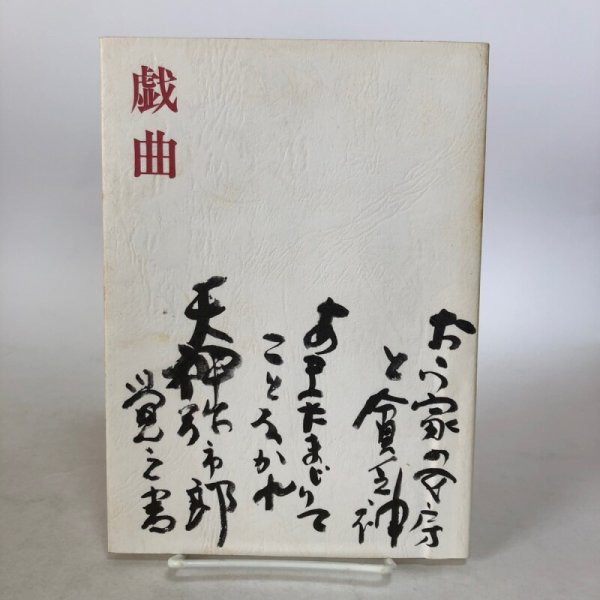 戯曲
おら家の女房
と貧乏神
あまたまじりて
ことなかれ
天神弥市郎
覚之書